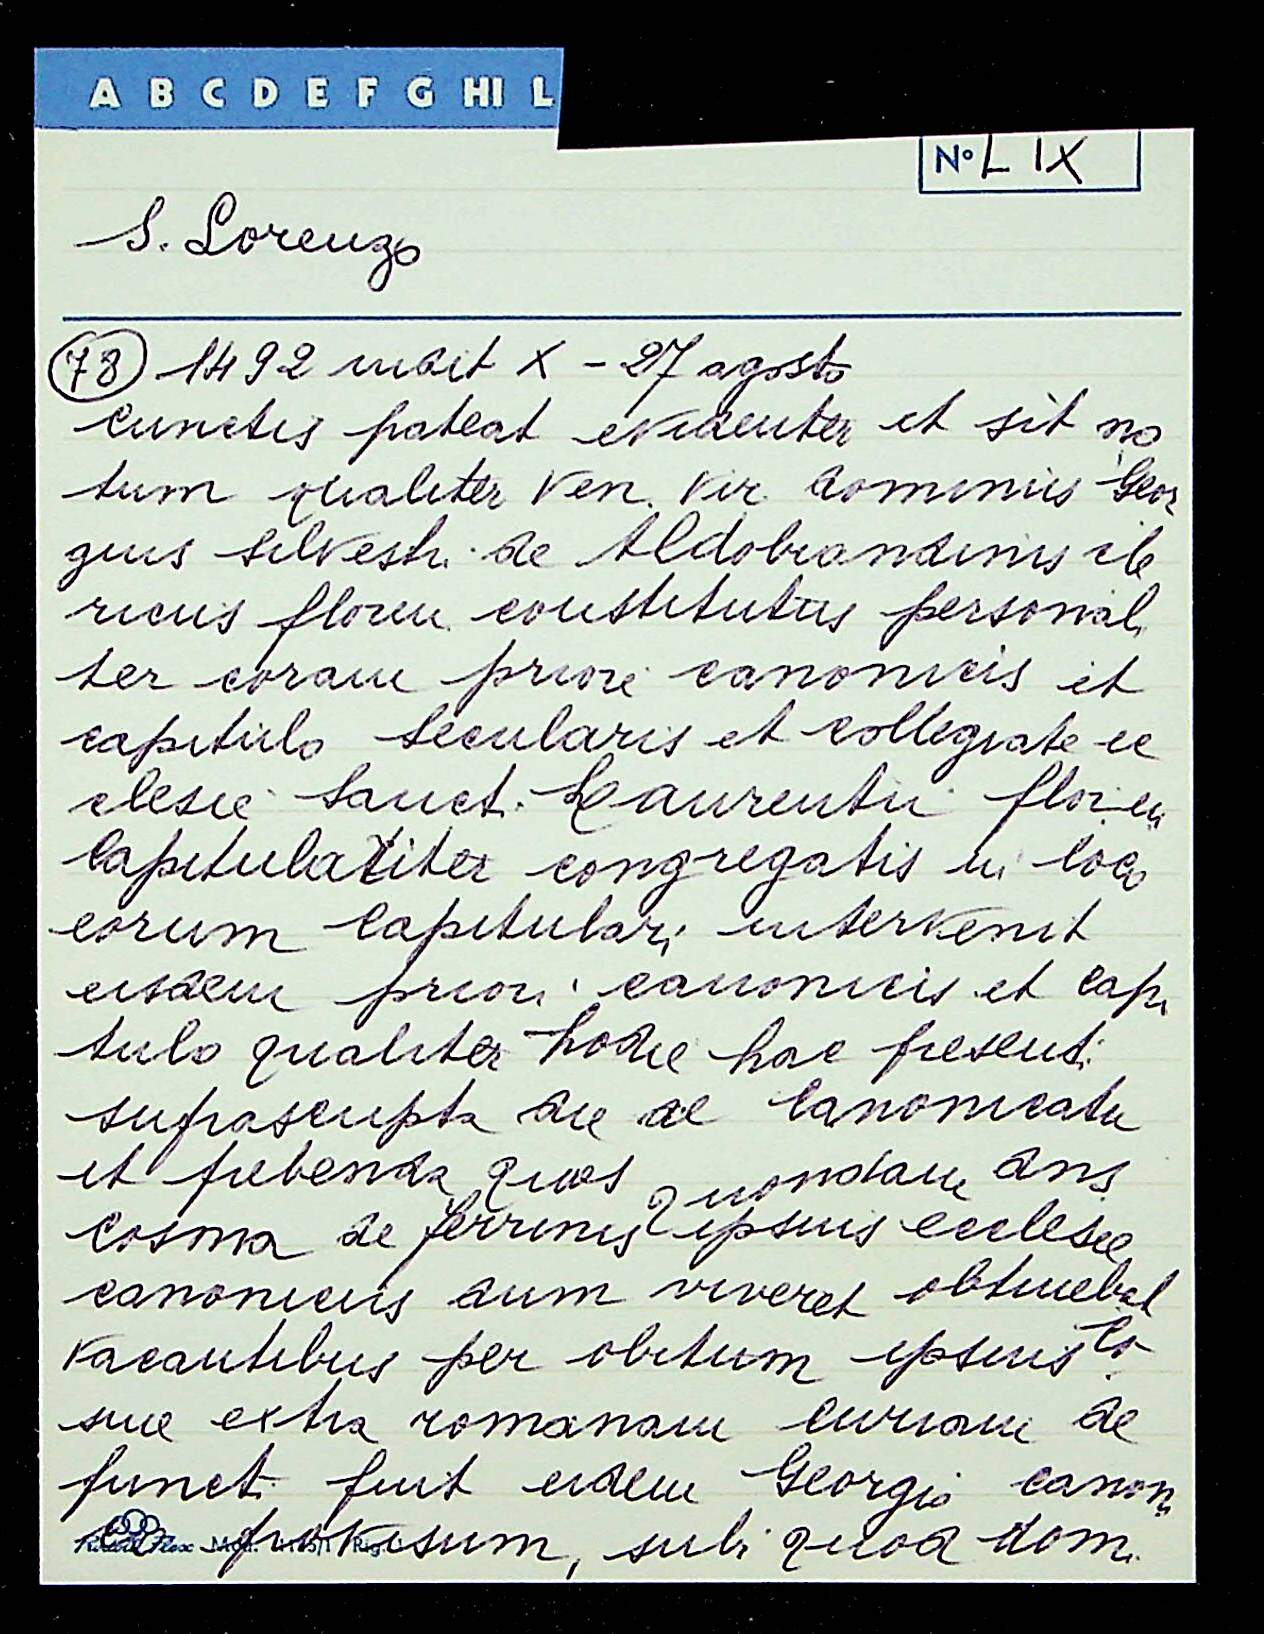 A B C D E F G HI L
N° L IX
S. Lorenzo
78 1492 indit X - 27 agosto
cunctis pateat evidenter et sit no
tum qualiter Ven. Vir. dominus Geor
gius Silvestri de Aldobrandinis cle
ricus floren. constitutus personali
ter coram priore canonicis et
capitulo secularis et collegiate ec
clesie Sancti Laurentii floren
Capitulariter congregatis in loco
eorum Capitulari intervenit
eisdem priori canonicis et capi
tulo qualiter hodie hac presenti
suprascripta die de Canonicatu
et prebenda quos quondam dns
Cosma de ferrinis ipsius ecclesie
canonicus dum viveret obtinebat
vacantibus per obitum ipsius Co
sme extra romanam curiam de
functi fuit eidem Georgio canoni
provisum, sub quod dom.